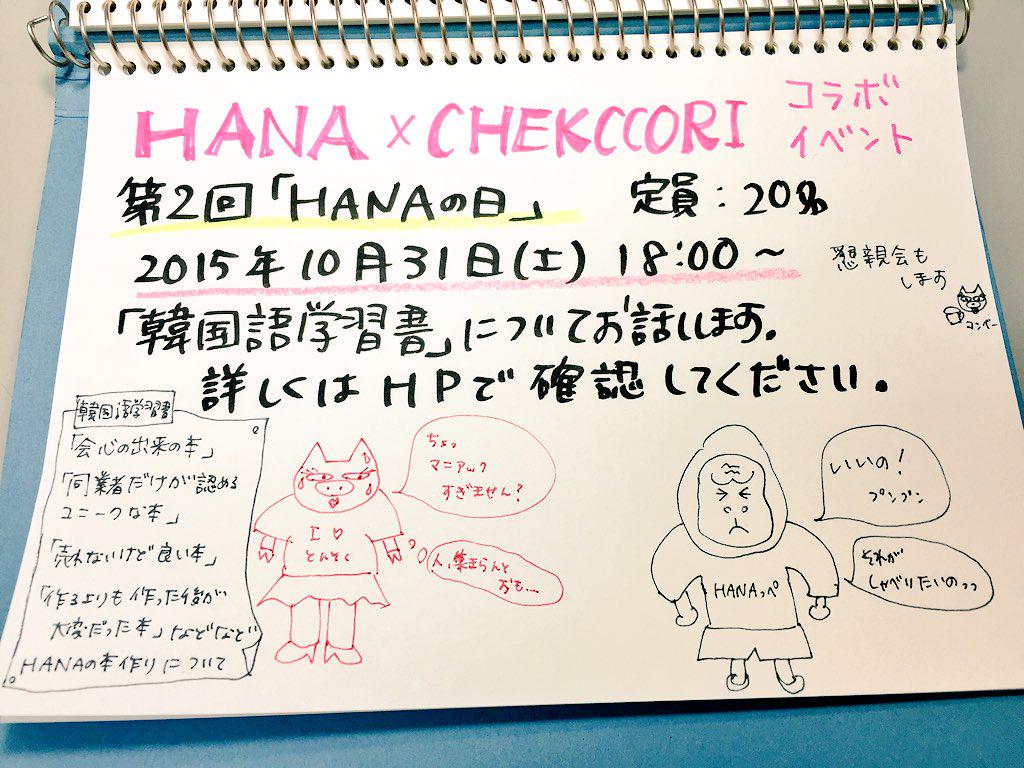 HANA × CHEKCCORI コラボ
イベント
第2回「HANAの日」 定員：20名
2015年10月31日(土) 18:00～
懇親会も
します
コンベー
「韓国語学習書」についてお話しします。
詳しくはHPで確認してください。
韓国語学習書
「会心の出来の本」
「同業者だけが認める
ユニークな本」
「売れないけど良い本」
「作るよりも作った後が
大変だった本」などなど
HANAの本作りについて
ちょっ
マニアック
すぎません?
I ♡
とんそく
人、集まらんと
おも...
いいの!
プンプン
それが
しゃべりたいのっっ
HANAっペ